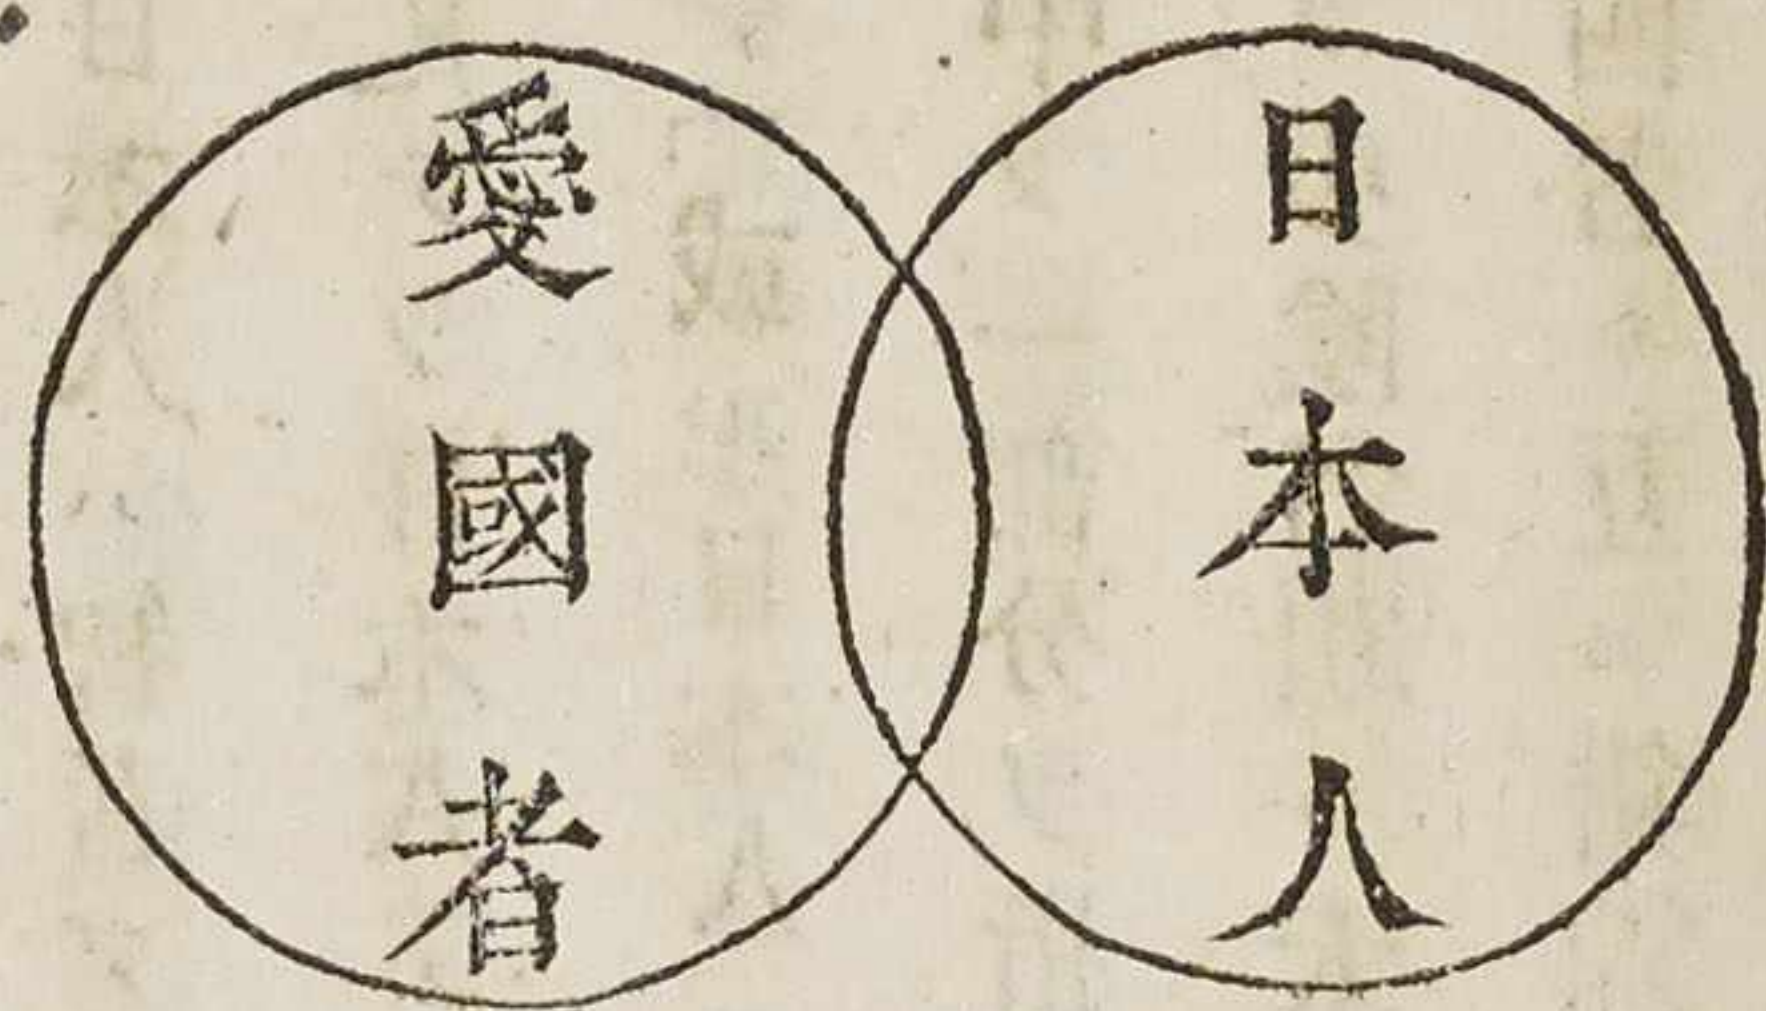 日本人
愛國者